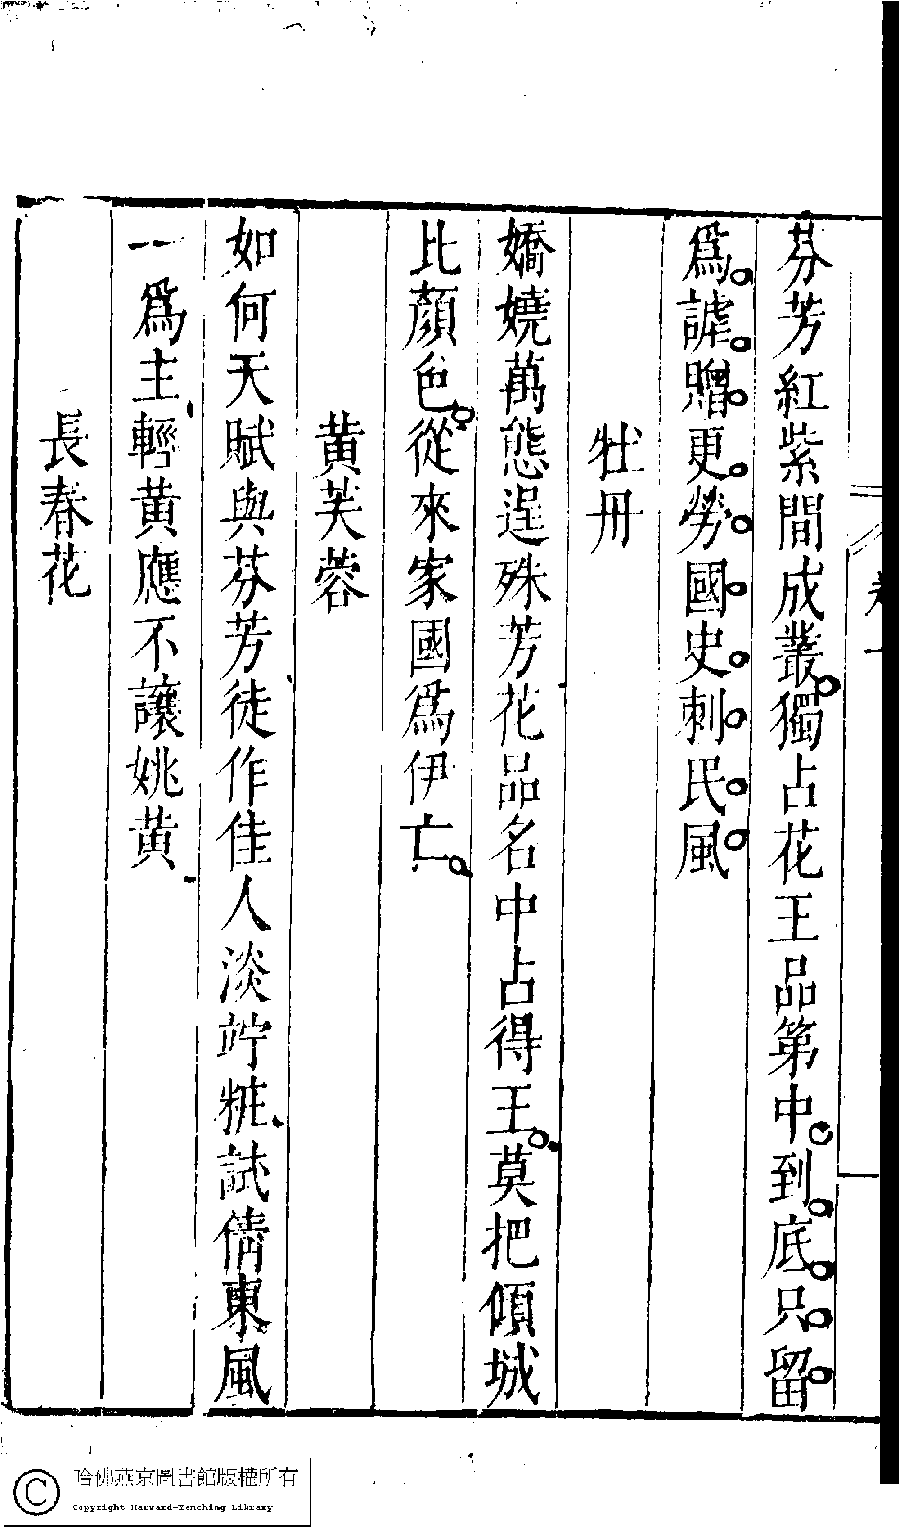 芬芳紅紫間成叢獨占花王品第中到底只留
爲謔贈更勞國史刺民風
牡丹
嬌嬈萬態逞殊芳花品名中占得王莫把傾城
比顏色從來家國爲伊亡
黄芙蓉
如何天賦與芬芳徒作佳人淡竚粧試倩東風
一爲主輕黄應不讓姚黄
長春花
哈佛燕京圖書館版權所有
Copyright Harvard-Yenching Library